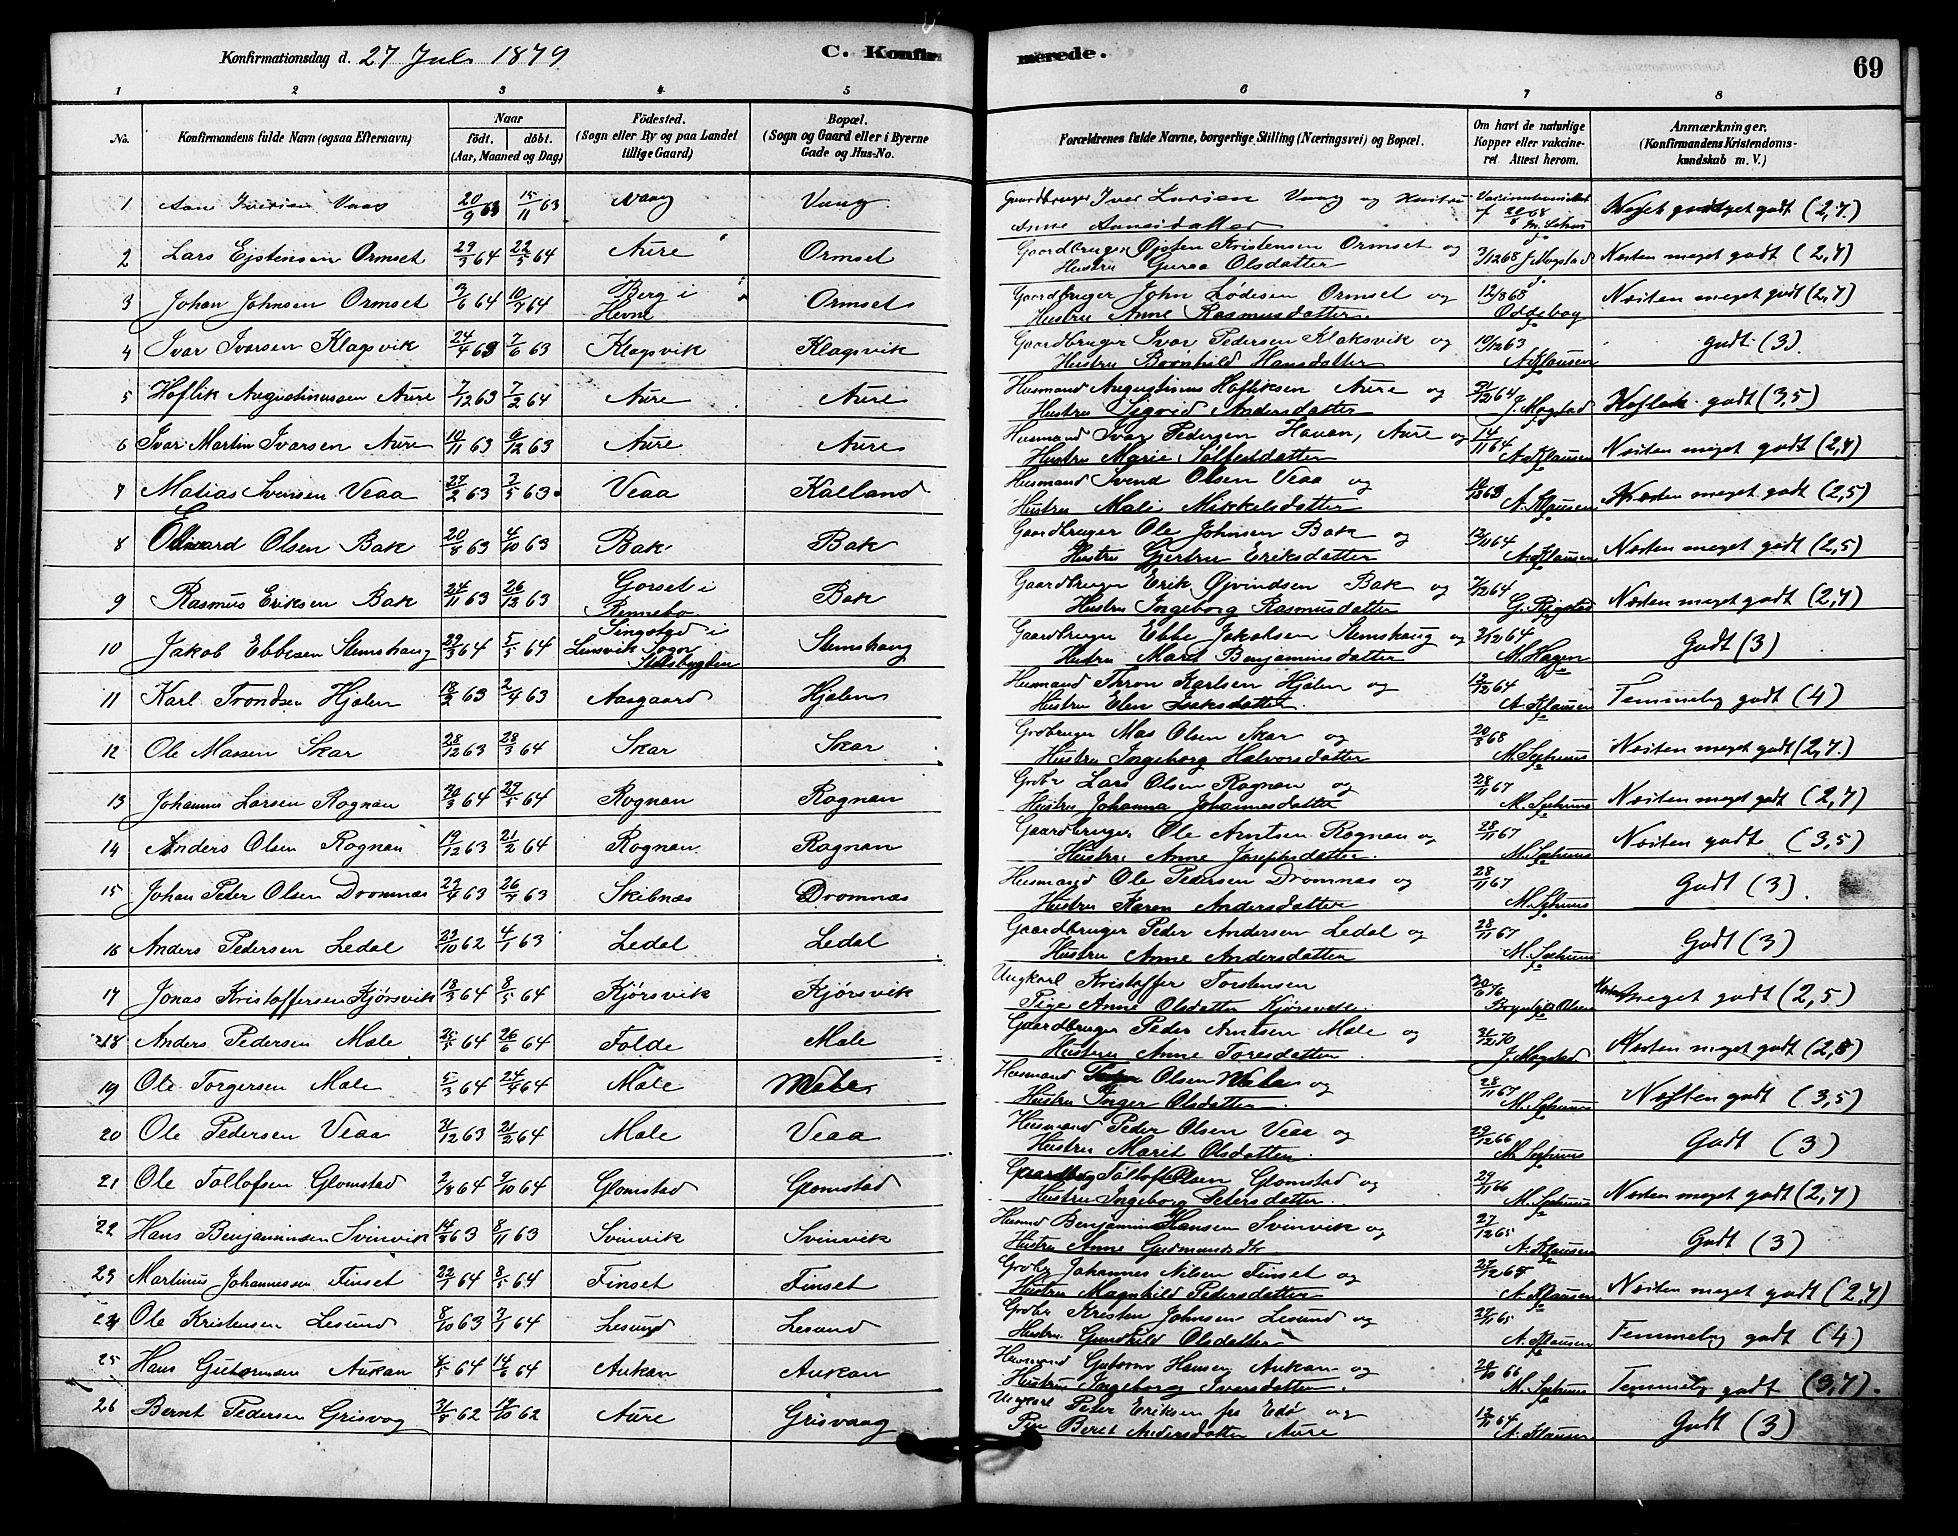 Konfirmationsdag d. 27 Juli 1879
C. Konfirmerede.
69
1 2 3 4 5 6 7 8
No.
Konfirmandens fulde Navn (ogsaa Efternavn)
Naar
födt. döbt.
(Aar, Maaned og Dag)
Födested.
(Sogn eller By og paa Landet
tillige Gaard)
Bopæl.
(Sogn og Gaard eller i Byerne
Gade og Hus-No.
Forældrenes fulde Navne, borgerlige Stilling (Næringsvei) og Bopæl.
Om havt de naturlige
Kopper eller vakcine-
ret Attest herom.
Anmærkninger.
(Konfirmandens Kristendoms-
kundskab m. V.)
1 20/9 63 15/11 63 Vaag Vaag Gaardbruger Iver Larsen Vaag og Hustru
get godt (2,7)
2 Lars Ejstensen Ormset 29/3 64 22/5 64 Aure Ormset Gaardbruger Øjsten Kristensen Ormset og
Hustru Guroe Olsdatter 3/12 68 J. Mogstad Næsten meget godt (2,7)
3 Johan Johnsen Ormset 3/6 64 10/7 64 Berg i
Hevne Ormset Gaardbruger John Lødesen Ormset og
Hustru Anne Rasmusdatter 12/8 68 Næsten meget godt (2,7)
4 Ivar Ivarsen Klagsvik 24/4 63 7/6 63 Klagsvik Klagsvik Gaardbruger Ivar Pedersen Klaksvik og
Hustru Hansdatter 10/12 63 A. Klausen Godt (3)
5 Hoflik Augustinussen Aure 7/12 63 7/2 64 Aure Aure Husmand Augustinus Hofliksen Aure og
Hustru Sigrid Andersdatter J. Mogstad godt (3,5)
6 Ivar Martin Ivarsen Aure 10/11 63 6/12 63 Aure Aure Husmand Ivar Pedersen Havan, Aure og
Hustru Marie 14/11 64 A. Klausen Næsten meget godt (2,7)
7 Matias Svensen Veaa 27/2 63 3/5 63 Veaa Kalland Husmand Svend Olsen Veaa og
Hustru Mali Mikkelsdatter A. Klausen Næsten meget godt (2,5)
8 Edward Olsen Bak 20/8 63 4/10 63 Bak Bak Gaardbruger Ole Johnsen Bak og
Hustru Gjertru Eriksdatter 12/11 64 A. Klausen Næsten meget godt (2,5)
9 Rasmus Eriksen Bak 24/11 63 26/12 63 Gorset i
Rennebo Bak Gaardbruger Erik Øjvindsen Bak og
Hustru Ingeborg Rasmusdatter 7/12 64 Næsten meget godt (2,7)
10 Jakob Ebbesen Stemshaug 29/3 64 5/5 64 Singstad i
Lensvik Sogn
Stadsbygden Stemshaug Gaardbruger Ebbe Jakobsen Stemshaug og
Hustru Marit Benjaminsdatter 2/12 64 M. Hagen Godt (3)
11 Karl Trondsen Hjelen 18/2 63 2/4 63 Aasgaard Hjelen Husmand Thron Karlsen Hjelen og
Hustru Elen Isaksdatter 12/12 64 A. Klausen Temmelig godt (4)
12 Ole Massen Skar 28/12 63 28/3 64 Skar Skar Grdbruger Mas Olsen Skar og
Hustru Ingeborg Halvorsdatter 20/8 68 Næsten meget godt (2,7)
13 Johannes Larsen Rognan 30/3 64 27/5 64 Rognan Rognan Grdbr Lars Olsen Rognan og
Hustru Johanna Johannesdatter 28/11 67 Næsten meget godt (2,7)
14 Anders Olsen Rognan 19/12 63 21/2 64 Rognan Rognan Gaardbruger Ole Arntsen Rognan og
Hustru Anne Josephsdatter 28/11 67 Næsten godt (3,5)
15 Johan Peter Olsen Dromnæs 22/4 63 26/7 63 Skibnæs Dromnæs Husmand Ole Pedersen Dromnæs og
Hustru Karen Andersdatter 28/11 67 Godt (3)
16 Anders Pedersen Ledal 22/10 62 4/1 63 Ledal Ledal Gaardbruger Peder Andersen Ledal og
Hustru Anne Andersdatter 28/11 67 Godt (3)
17 Jonas Kristoffersen Kjørsvik 18/3 64 8/5 64 Kjørsvik Kjørsvik Ungkarl Kristoffer Torstensen
Pige Anne Olsdatter Kjørsvik 30/6 76 Næsten meget godt (2,5)
18 Anders Pedersen Male 25/5 64 26/6 64 Folde Male Gaardbruger Peder Arntsen Male og
Hustru Anne Toresdatter J. Mogstad Næsten meget godt (2,8)
19 Ole Torgersen Male 5/3 64 24/4 64 Male Male Husmand Olsen Male og
Hustru Inger Olsdatter 28/11 67 Næsten godt (3,5)
20 Ole Pedersen Veaa 31/12 63 21/2 64 Male Veaa Husmand Peder Olsen Veaa og
Hustru Marit Olsdatter 29/12 66 Godt (3)
21 Ole Tollofsen Glomstad 2/8 64 2/10 64 Glomstad Glomstad Gaardbrug Olsen Glomstad og
Hustru Ingeborg Petersdatter 29/11 66 Næsten meget godt (2,7)
22 Hans Benjaminsen Svinvik 14/8 63 8/11 63 Svinvik Svinvik Husmd Benjamin Hansen Svinvik og
Hustru Anne Gudmundsdtr 27/12 65 A. Klausen Godt (3)
23 Martinus Johannessen Finset 22/1 64 8/5 64 Finset Finset Grdbr Johannes Nilsen Finset og
Hustru Magnhild Pedersdatter 27/12 65 A. Klausen Næsten meget godt (2,7)
24 Ole Kristensen Lesund 8/10 63 3/1 64 Lesund Lesund Grdbr Kristen Johnsen Lesund og
Hustru Gunhild Olsdatter 27/11 65 A. Klausen Temmelig godt (4)
25 Hans Guttormsen Aukan 4/5 64 14/6 64 Aukan Aukan Husmand Guttorm Hansen Aukan og
Hustru Ingeborg Iversdatter 20/10 66 Temmelig godt (3,7)
26 Bernt Pedersen Grisvog 31/8 62 19/10 62 Aure Grisvaag Ungkarl Peter Eriksen fra Edø og
Pige Beret Andersdatter Aure 12/11 64 A. Klausen Godt (3)